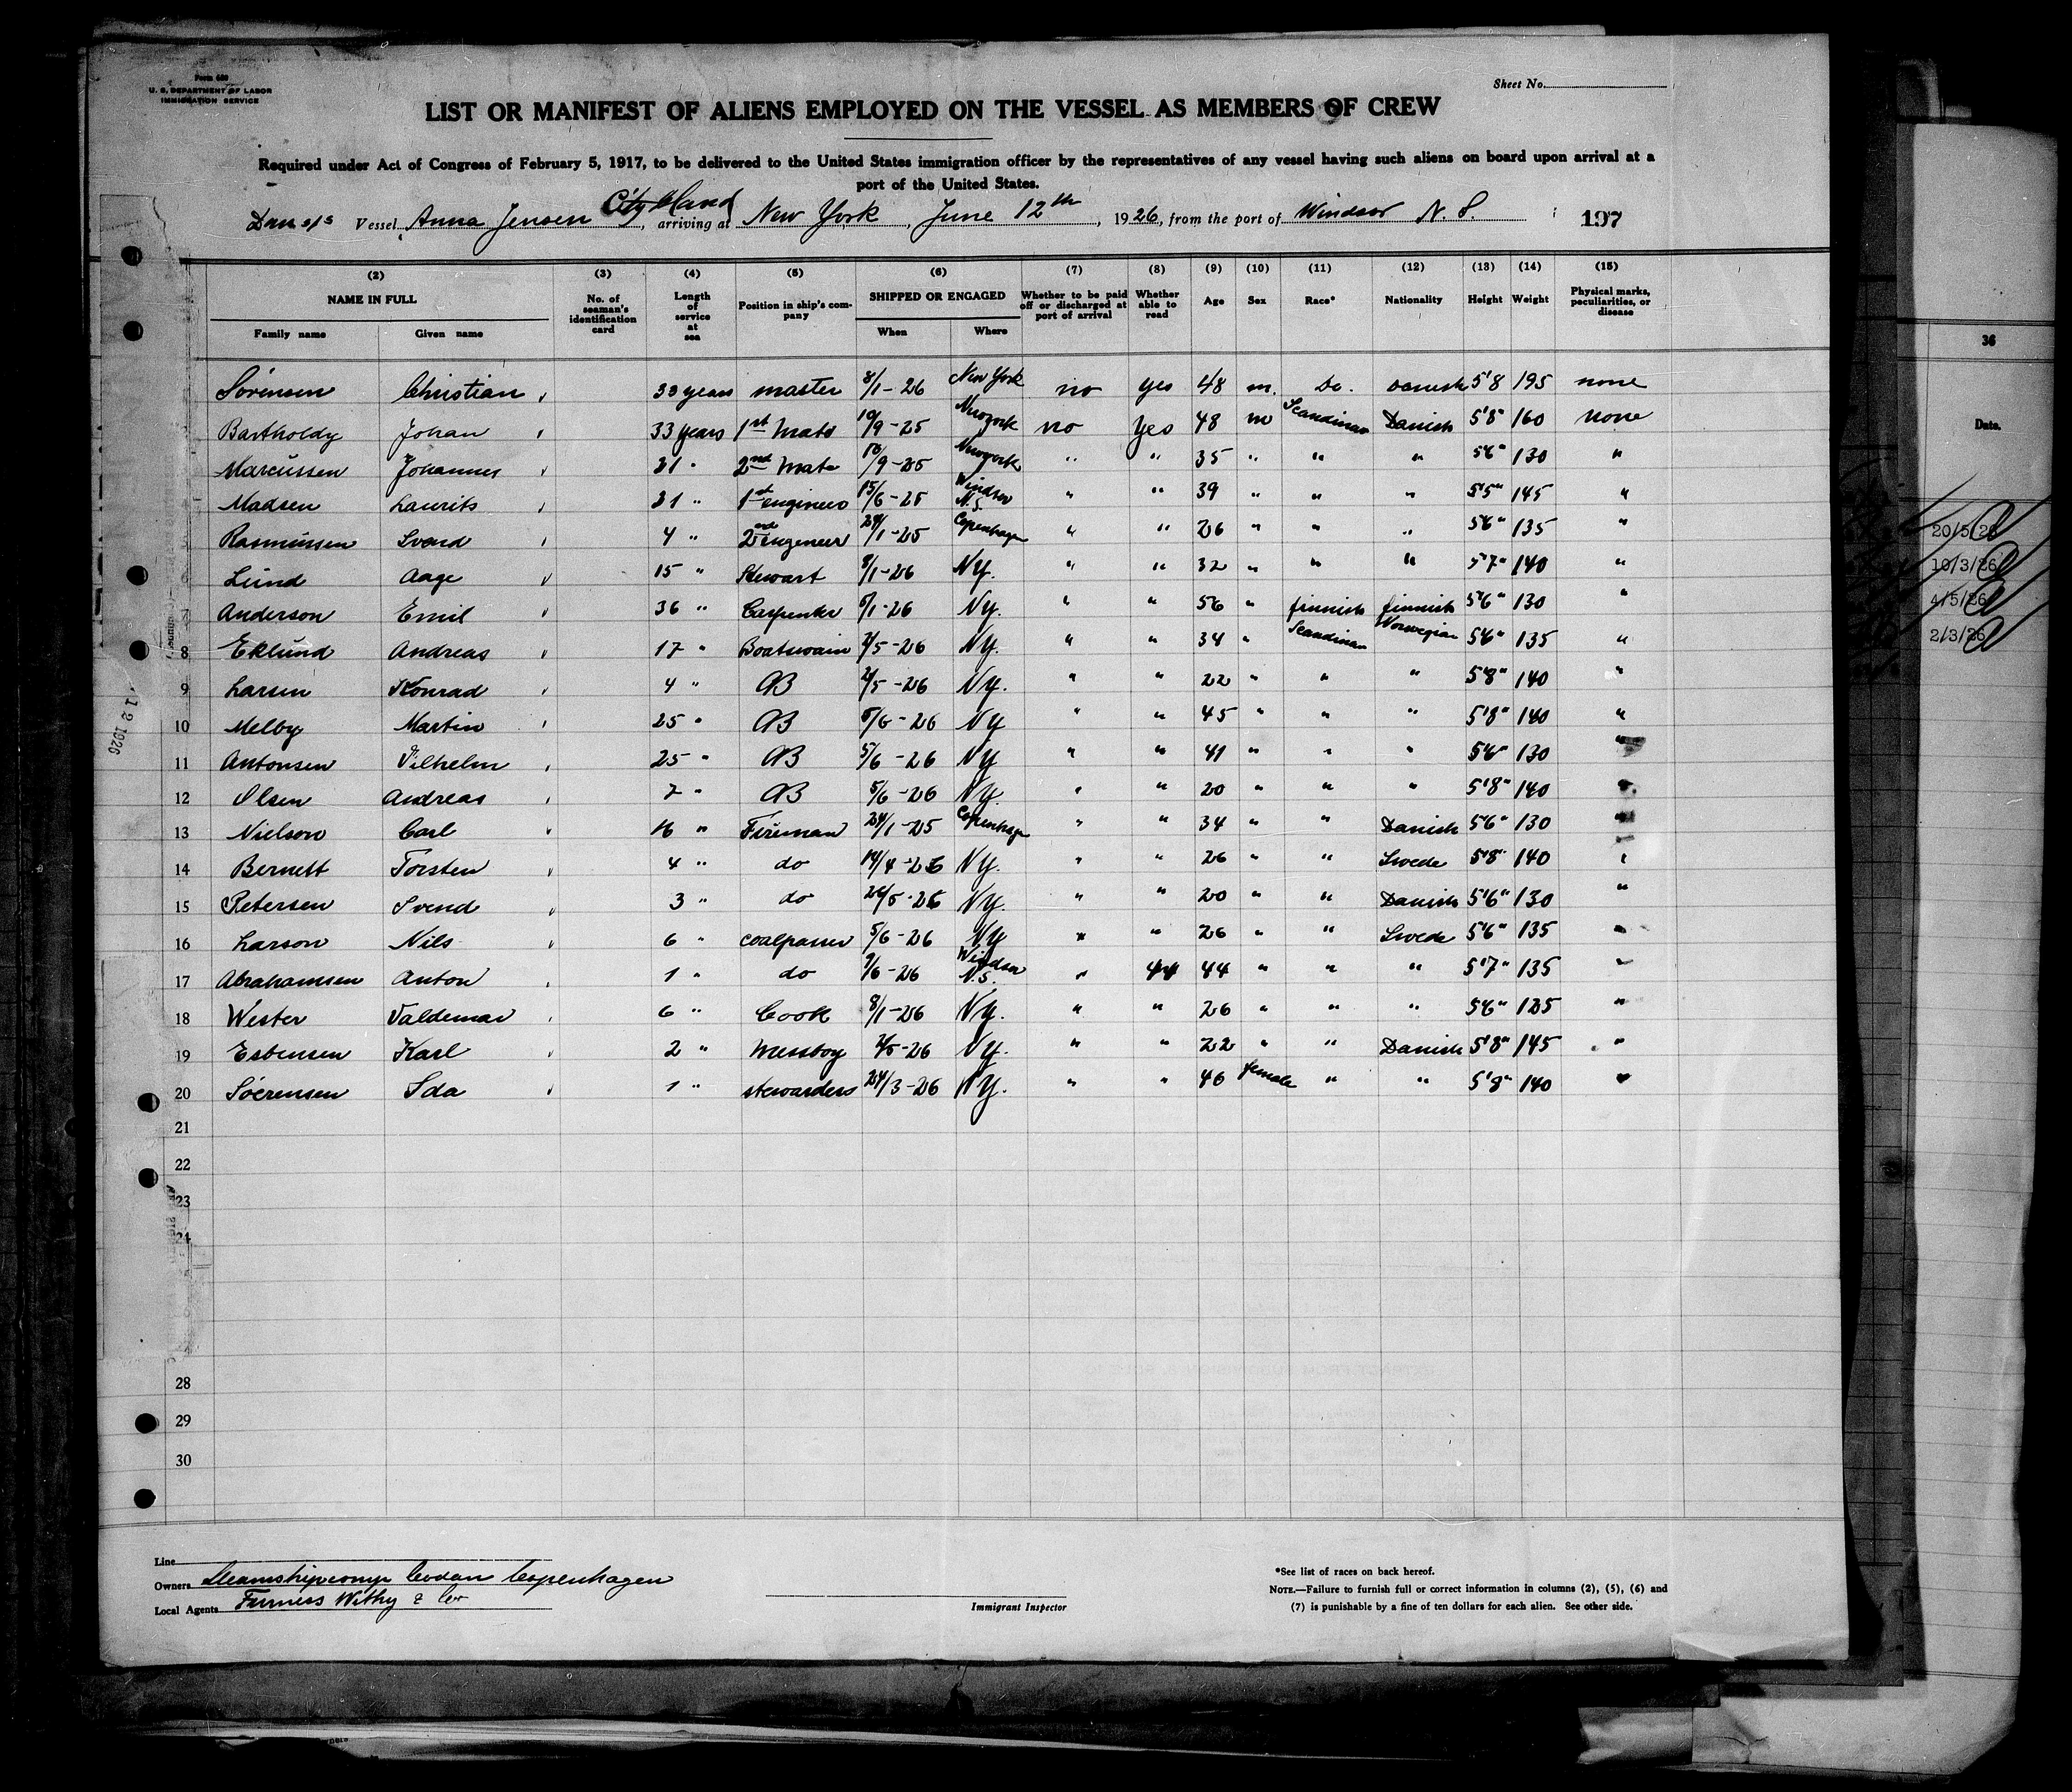 Form 680
U. S. DEPARTMENT OF LABOR
IMMIGRATION SERVICE
Sheet No.
LIST OR MANIFEST OF ALIENS EMPLOYED ON THE VESSEL AS MEMBERS OF CREW
Required under Act of Congress of February 5, 1917, to be delivered to the United States immigration officer by the representatives of any vessel having such aliens on board upon arrival at a
port of the United States.
Dan s/s Vessel Anna Jensen City Island, arriving at New York, June 12th, 1926, from the port of Windsor N. S. 197
(2) (3) (4) (5) (6) (7) (8) (9) (10) (11) (12) (13) (14) (15)
NAME IN FULL No. of seaman's identification card Length of service at sea Position in ship's company SHIPPED OR ENGAGED Whether to be paid off or discharged at port of arrival Whether able to read Age Sex Race* Nationality Height Weight Physical marks, peculiarities, or disease
Family name Given name When Where
Sörensen Christian 33 years master 8/1-26 New York no yes 48 m. Do. Danish 5'8 195 none
Bartholdy Johan 33 years 1st Mate 10/9-25 Newyork no Yes 48 m Scandinav Danish 5'8" 160 none
Marcussen Johannes 21 " 2nd Mate 10/9-25 Newyork " " 35 " " " 5'6" 130 "
Madsen Laurits 21 " 1st engineer 15/6-25 Windsor N.S. " " 39 " " " 5'5" 145 "
Rasmussen Svend 4 " 2nd engineer 24/1-25 Copenhagen " " 26 " " " 5'6" 135 "
Lund Aage 15 " Stewart 8/1-26 Ny. " " 32 " " " 5'7" 140 "
7 Anderson Emil 36 " Carpenter 8/1-26 Ny. " " 56 " finnish finnish 5'6" 130 "
8 Eklund Andreas 17 " Boatswain 2/5-26 Ny. " " 34 " Scandinav Norwegian 5'6" 135 "
9 Larsen Konrad 4 " AB 2/5-26 Ny. " " 22 " " " 5'8" 140 "
10 Melby Martin 25 " AB 5/6-26 Ny " " 45 " " " 5'8" 140 "
11 Antonsen Vilhelm 25 " AB 5/6-26 Ny " " 41 " " " 5'6" 130 "
12 Olsen Andreas 2 " AB 5/6-26 Ny. " " 20 " " " 5'8" 140 "
13 Nielson Carl 16 " Fireman 24/1-25 Copenhagen " " 34 " " Danish 5'6" 130 "
14 Bernett Torsten 4 " do 14/4-26 Ny. " " 26 " " Swede 5'8" 140 "
15 Petersen Svend 3 " do 26/5-26 Ny. " " 20 " " Danish 5'6" 130 "
16 Larson Nils 6 " coalpasser 5/6-26 Ny " " 26 " " Swede 5'6" 135 "
17 Abrahamsen Anton 1 " do 9/6-26 Windsor N.S. " 44 " " " 5'7" 135 "
18 Wester Valdemar 6 " Cook 8/1-26 Ny. " " 26 " " " 5'6" 125 "
19 Esbensen Karl 2 " Messboy 2/5-26 Ny. " " 22 " " Danish 5'8" 145 "
20 Söerensen Ida 1 " stewardess 24/3-26 NY. " " 46 female " " 5'8" 140 "
21
22
23
24
28
29
30
Line
Owners Steamshipcomp Codan Copenhagen
Local Agents Furness Withy & Co
Immigrant Inspector
*See list of races on back hereof.
NOTE.—Failure to furnish full or correct information in columns (2), (5), (6) and
(7) is punishable by a fine of ten dollars for each alien. See other side.
12 1926
36
Date.
20/5/26
10/3/26
4/5/26
2/3/26